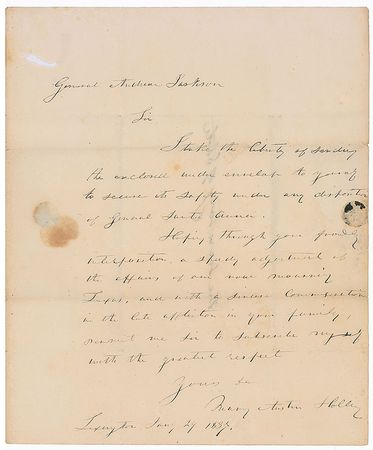 General Andrew Jackson
Sir
I take the liberty of sending
the enclosed under envelope to yourself
to secure its safety under any disposition
of General Santa Anna.
Hoping through your friendly
interposition a speedy adjustment of
the affairs of our now mourning
Texas, and with a sincere Commiseration
in the late affliction in your family,
permit me Sir to subscribe myself
with the greatest respect
Yours &c
Mary Austin Holley
Lexington Jany 29 1837.